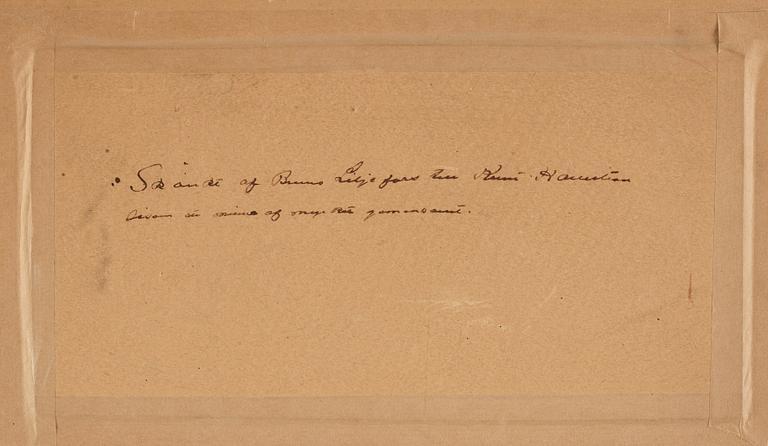 Skänkt af Bruno Liljefors till Knut Hamilton
såsom ett minne af mycket gemensamt.